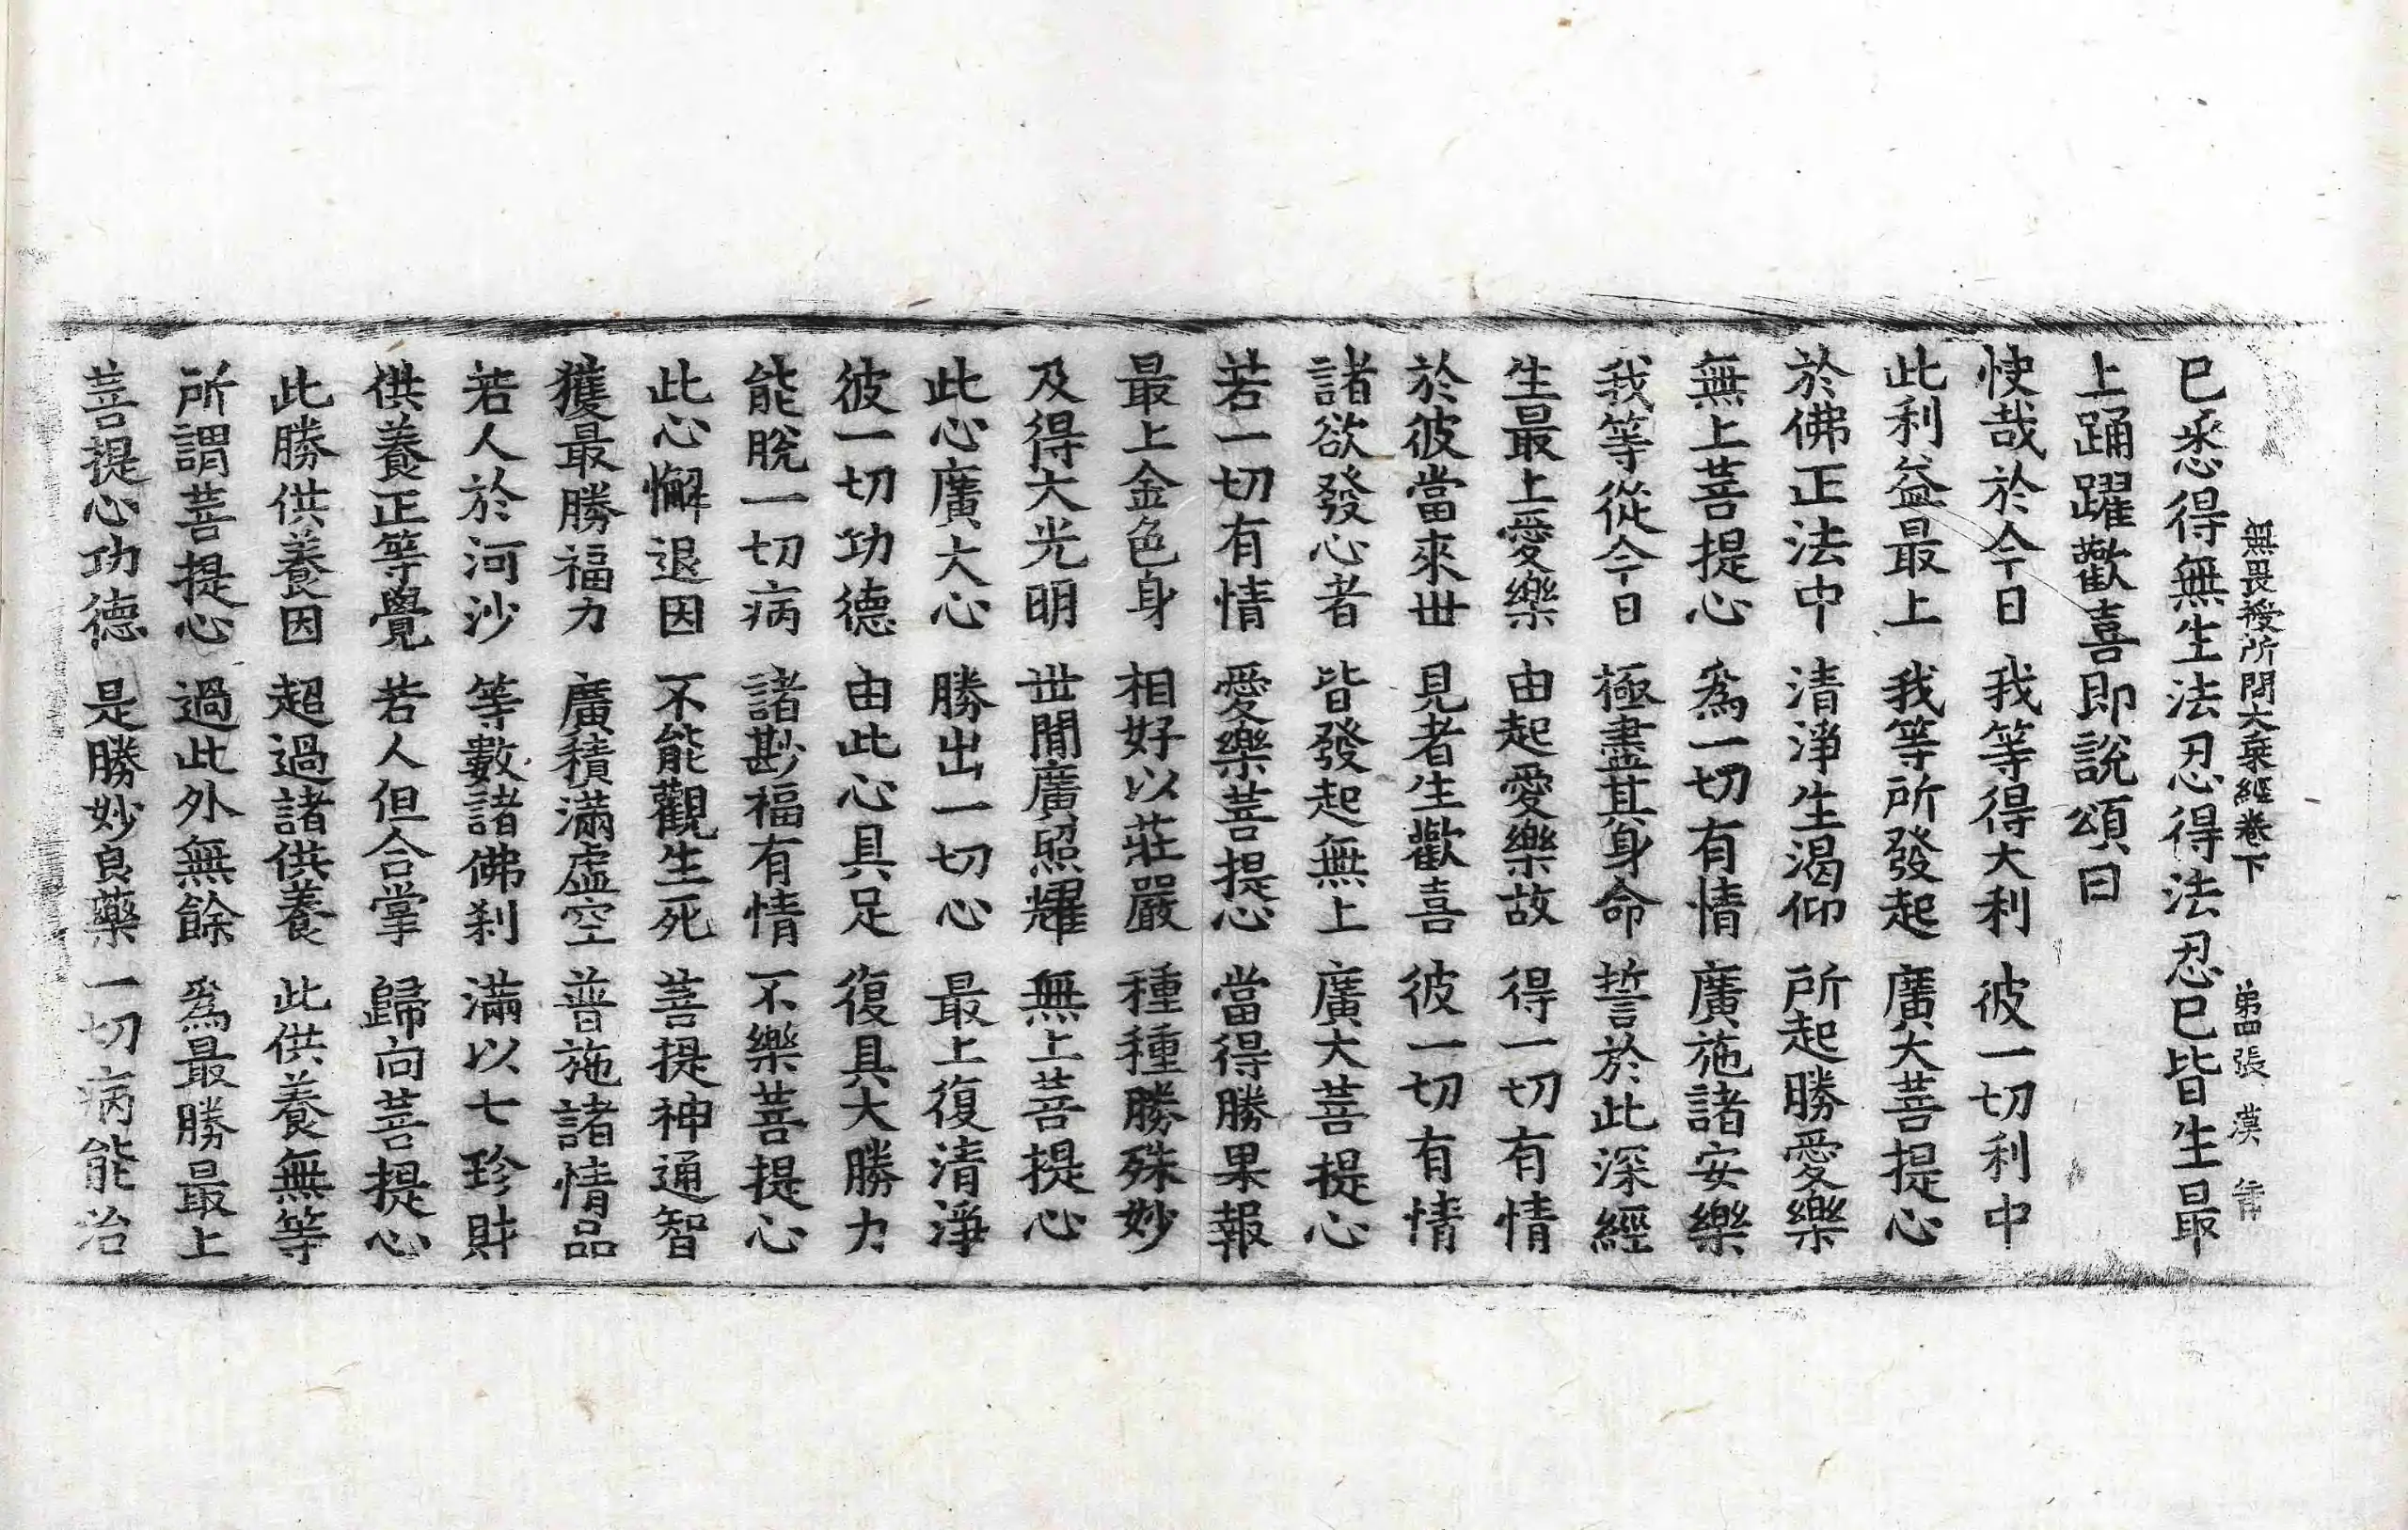 無畏授所問大乘經卷下　第四張　漢
已悉得無生法忍得法忍已皆生最
上踊躍歡喜即說頌曰
快哉於今日　我等得大利　彼一切利中
此利益最上　我等所發起　廣大菩提心
於佛正法中　清淨生渴仰　所起勝愛樂
無上菩提心　爲一切有情　廣施諸安樂
我等從今日　極盡其身命　誓於此深經
生最上愛樂　由起愛樂故　得一切有情
於彼當來世　見者生歡喜　彼一切有情
諸欲發心者　皆發起無上　廣大菩提心
若一切有情　愛樂菩提心　當得勝果報
最上金色身　相好以莊嚴　種種勝殊妙
及得大光明　世間廣照耀　無上菩提心
此心廣大心　勝出一切心　最上復清淨
彼一切功德　由此心具足　復具大勝力
能脫一切病　諸尠福有情　不樂菩提心
此心懈退因　不能觀生死　菩提神通智
獲最勝福力　廣積滿虛空　普施諸情品
若人於河沙　等數諸佛刹　滿以七珍財
供養正等覺　若人但合掌　歸向菩提心
此勝供養因　超過諸供養　此供養無等
所謂菩提心　過此外無餘　爲最勝最上
菩提心功德　是勝妙良藥　一切病能治